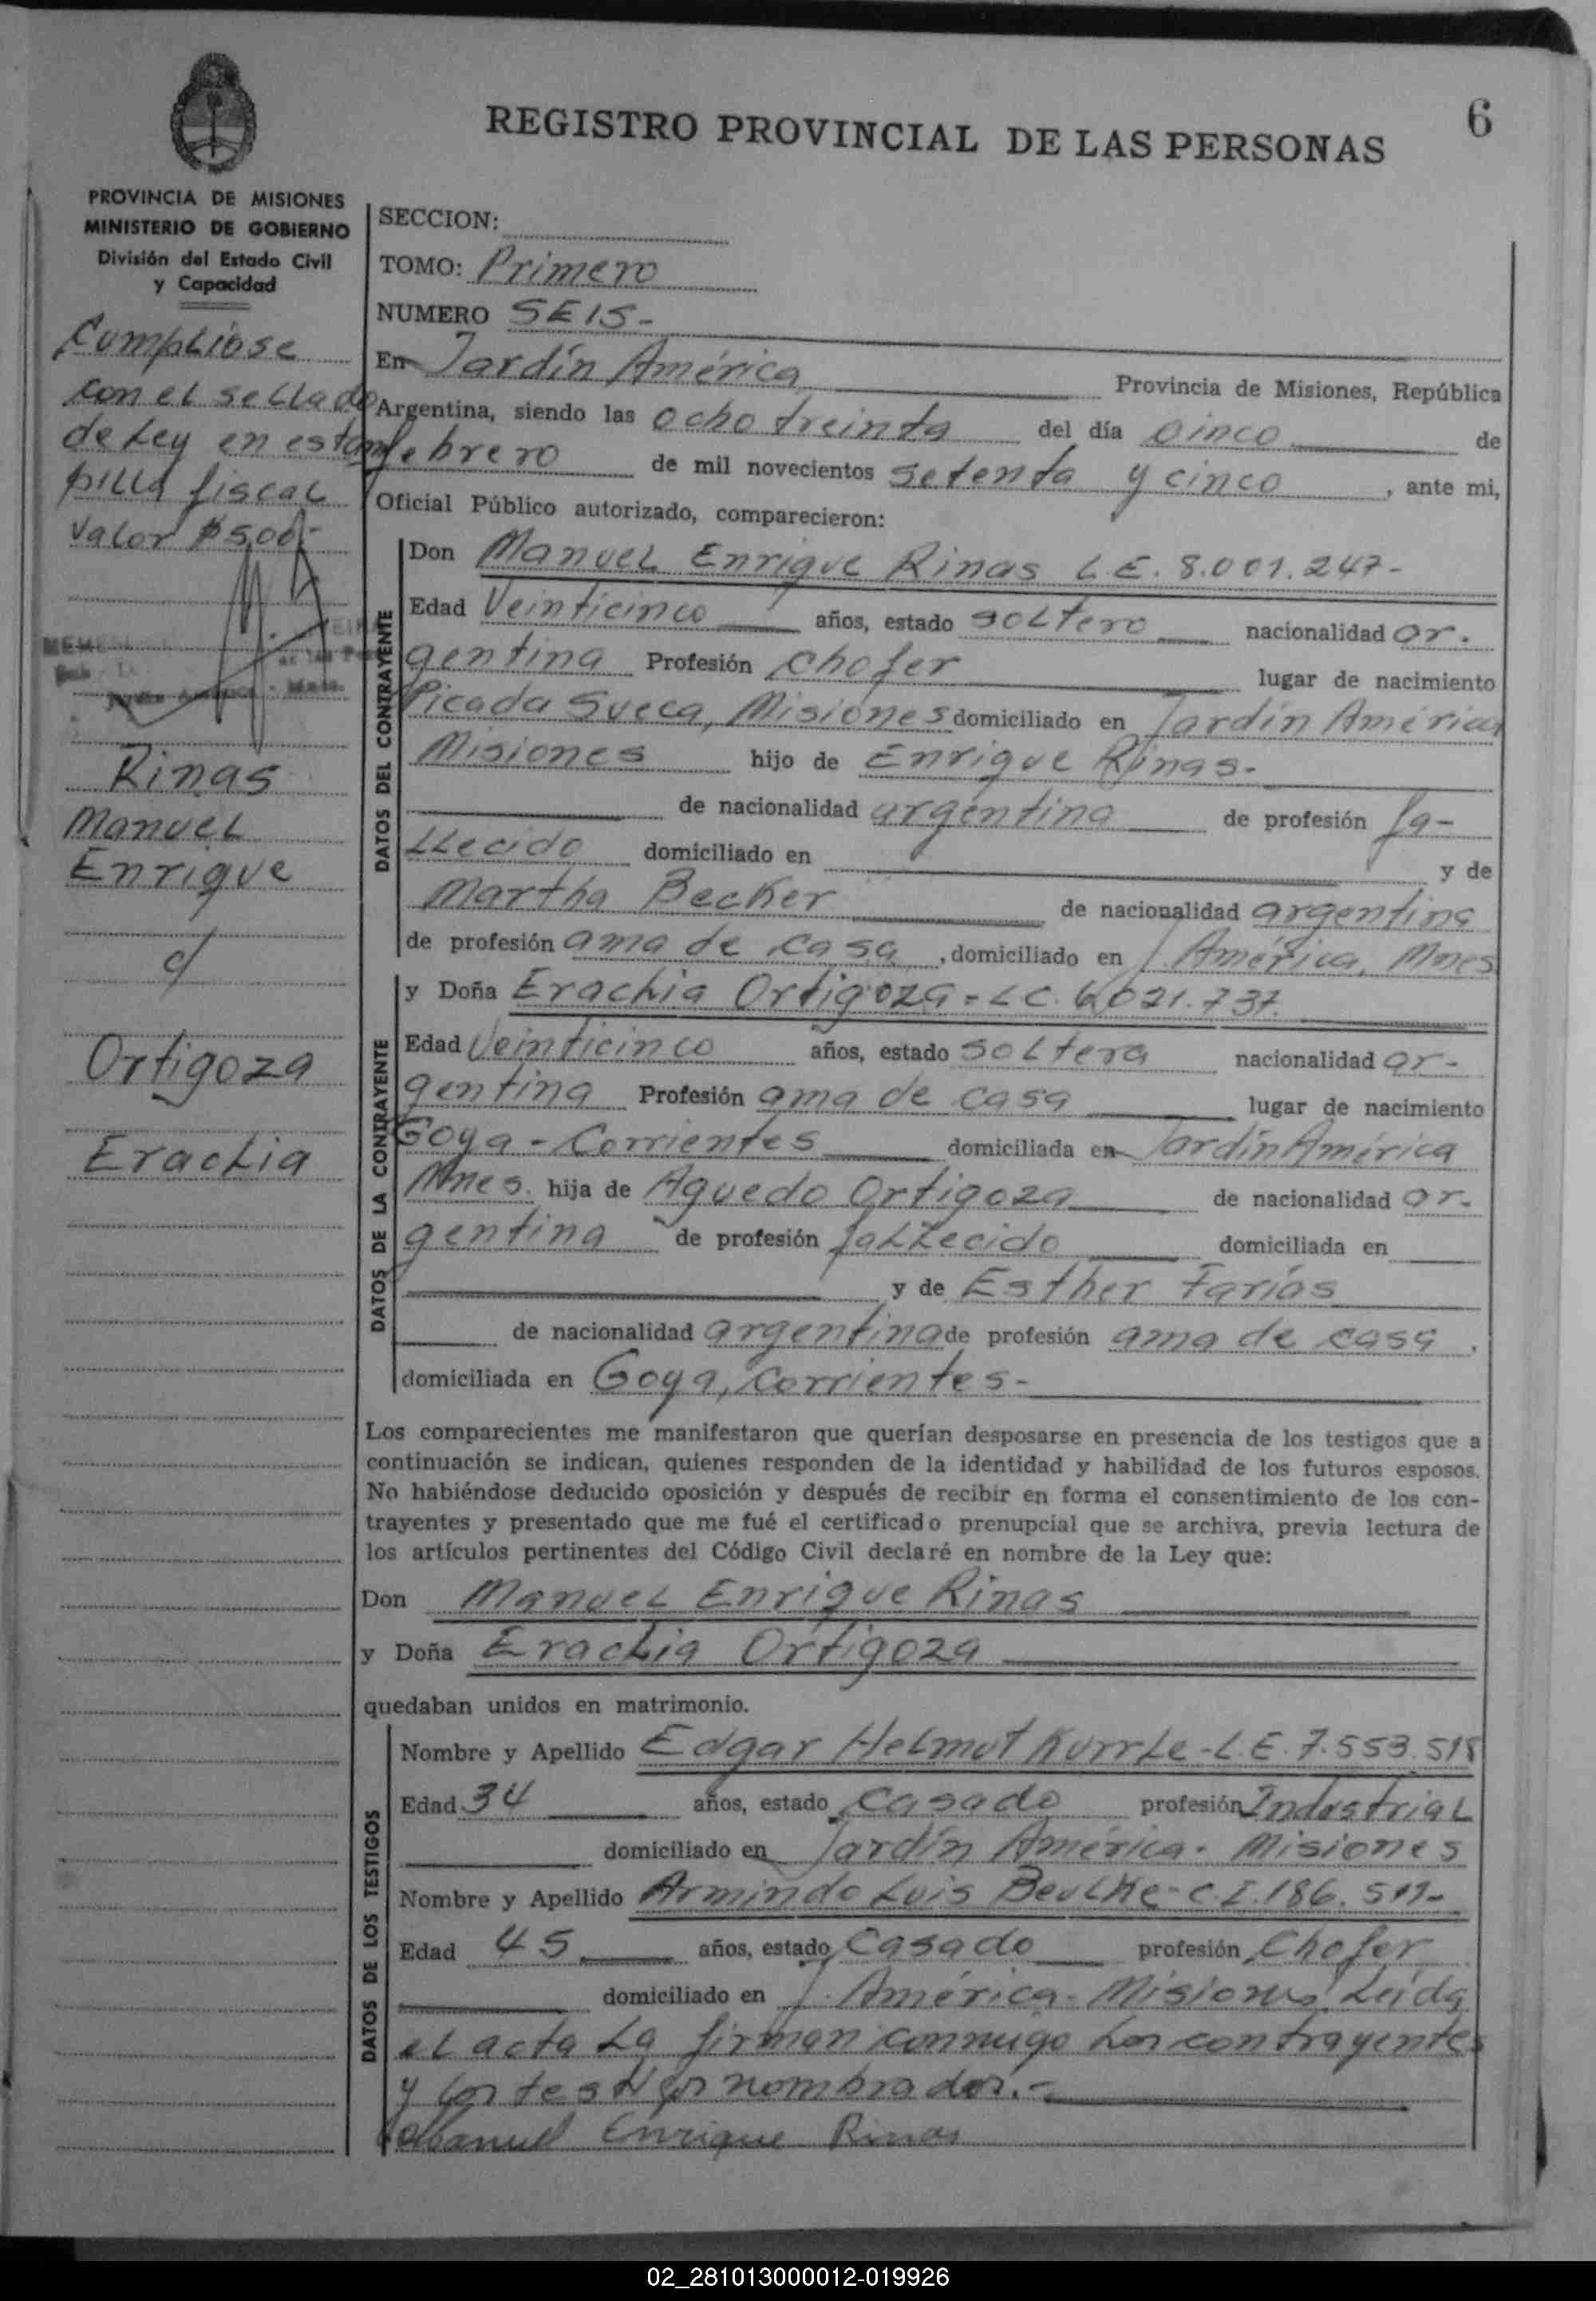 6
REGISTRO PROVINCIAL DE LAS PERSONAS
PROVINCIA DE MISIONES
MINISTERIO DE GOBIERNO
División del Estado Civil
y Capacidad
Cumplióse
con el sellado
de Ley en estam
pilla fiscal
Valor $5,00.-
Rinas
Manuel
Enrique
c/
Ortigoza
Eraclia
SECCION:
TOMO: Primero
NUMERO SEIS-
En Jardín América Provincia de Misiones, República
Argentina, siendo las ocho treinta del día cinco de
febrero de mil novecientos setenta y cinco, ante mi,
Oficial Público autorizado, comparecieron:
DATOS DEL CONTRAYENTE
Don Manuel Enrique Rinas L.E. 8.001.247-
Edad Veinticinco años, estado soltero nacionalidad ar-
gentina Profesión chofer lugar de nacimiento
Picada Sueca, Misiones domiciliado en Jardín América
Misiones hijo de Enrique Rinas-
de nacionalidad argentina de profesión fa-
llecido domiciliado en y de
Martha Becker de nacionalidad argentina
de profesión ama de casa, domiciliado en J. América, Mnes
DATOS DE LA CONTRAYENTE
y Doña Eraclia Ortigoza - L C. 6.021.737.
Edad Veinticinco años, estado soltera nacionalidad ar-
gentina Profesión ama de casa lugar de nacimiento
Goya - Corrientes domiciliada en Jardín América
Mnes. hija de Aguedo Ortigoza de nacionalidad ar-
gentina de profesión fallecido domiciliada en
y de Esther Farías
de nacionalidad argentina de profesión ama de casa,
domiciliada en Goya, Corrientes-
Los comparecientes me manifestaron que querían desposarse en presencia de los testigos que a
continuación se indican, quienes responden de la identidad y habilidad de los futuros esposos.
No habiéndose deducido oposición y después de recibir en forma el consentimiento de los con-
trayentes y presentado que me fué el certificado prenupcial que se archiva, previa lectura de
los artículos pertinentes del Código Civil declaré en nombre de la Ley que:
Don Manuel Enrique Rinas
y Doña Eraclia Ortigoza
quedaban unidos en matrimonio.
DATOS DE LOS TESTIGOS
Nombre y Apellido Edgar Helmut Kurrle - L.E. 7.553.518
Edad 34 años, estado casado profesión Industrial
domiciliado en Jardín América - Misiones
Nombre y Apellido Armindo Luis Beulke - C.I. 186.511-
Edad 45 años, estado Casado profesión Chofer
domiciliado en J. América - Misiones Leída
el acta la firman conmigo los contrayentes
y los testigos nombrados.-
Manuel Enrique Rinas
02_281013000012-019926